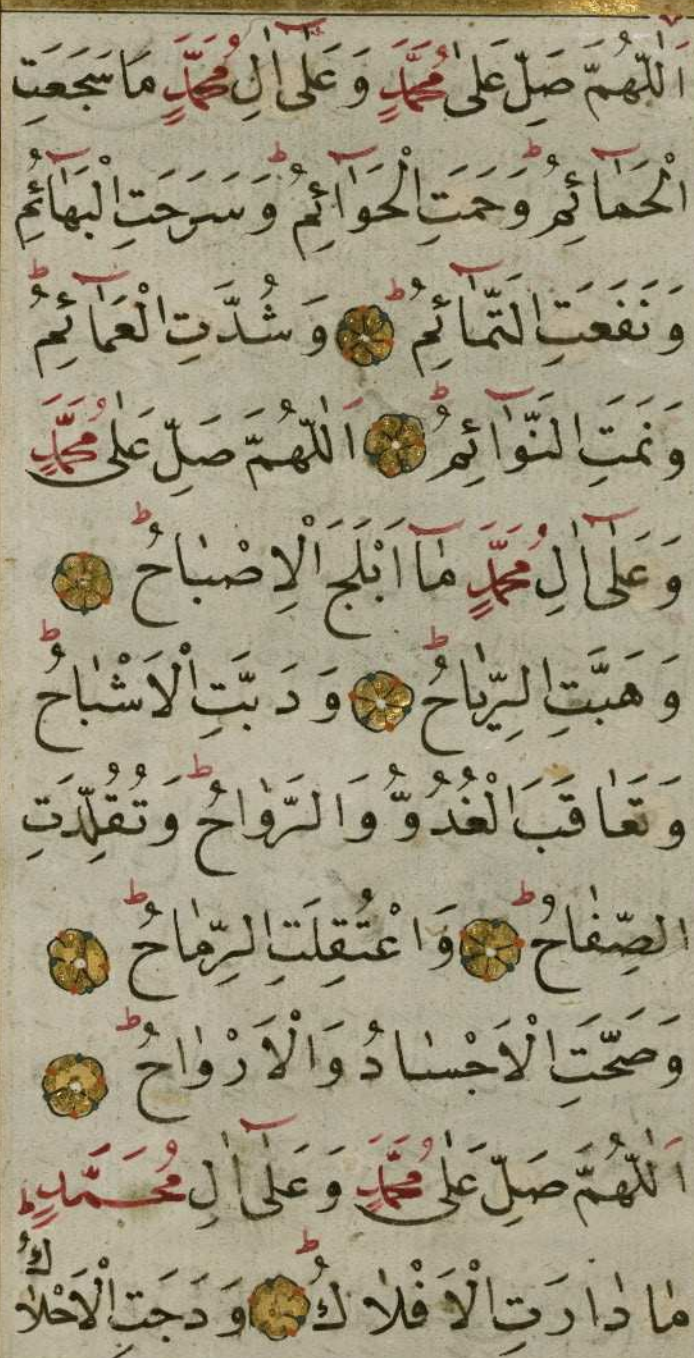 اَللّٰهُمَّ صَلِّ عَلٰى مُحَمَّدٍ وَعَلٰٓى اٰلِ مُحَمَّدٍ مَا سَجَعَتِ
الْحَمَآئِمُ ط وَحَمَتِ الْحَوَآئِمُ ط وَسَرَحَتِ الْبَهَآئِمُ
وَنَفَعَتِ التَّمَآئِمُ ط وَشُدَّتِ الْعَمَآئِمُ ط
وَنَمَتِ النَّوَآئِمُ ط اَللّٰهُمَّ صَلِّ عَلٰى مُحَمَّدٍ
وَعَلٰٓى اٰلِ مُحَمَّدٍ مَٓا اَبْلَجَ الْاِصْبَاحُ ط
وَهَبَّتِ الرِّيَاحُ ط وَدَبَّتِ الْاَشْبَاحُ ط
وَتَعَاقَبَ الْغُدُوُّ وَالرَّوَاحُ ط وَتُقُلِّدَتِ
الصِّفَاحُ ط وَاعْتُقِلَتِ الرِّمَاحُ ط
وَصَحَّتِ الْاَجْسَادُ وَالْاَرْوَاحُ ط
اَللّٰهُمَّ صَلِّ عَلٰى مُحَمَّدٍ وَعَلٰٓى اٰلِ مُحَمَّدٍ ط
مَا دَارَتِ الْاَفْلَاكُ ط وَدَجَتِ الْاَحْلَاكُ